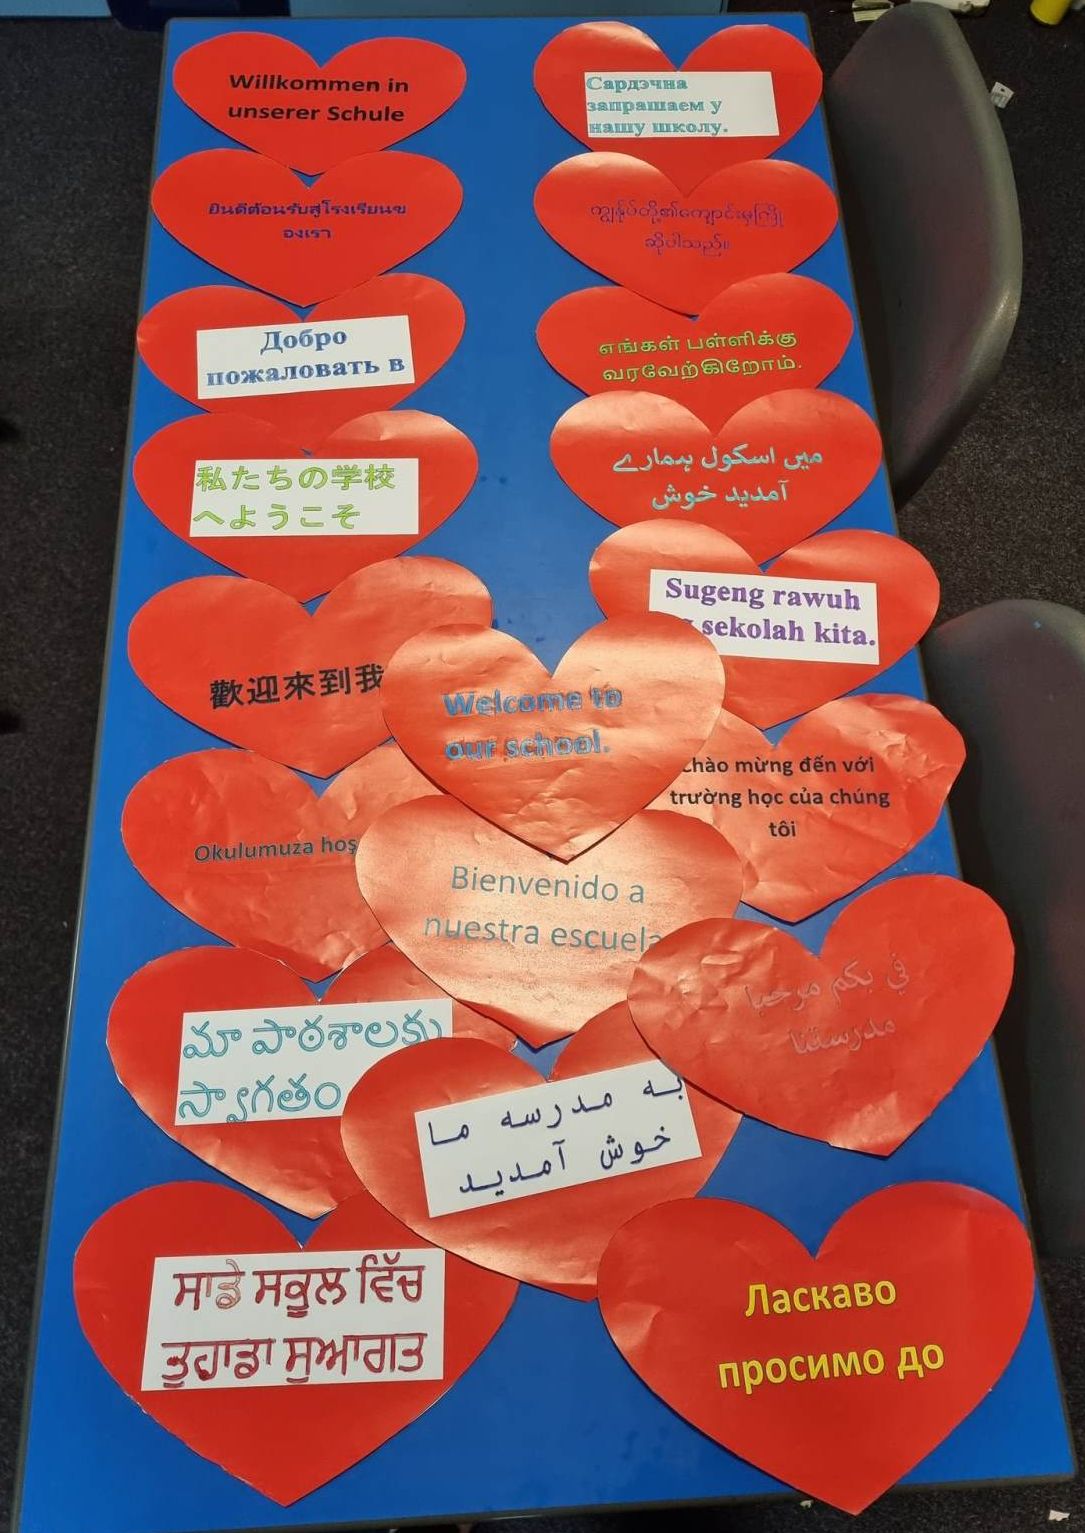 Willkommen in
unserer Schule
Сардэчна
запрашаем у
нашу школу.
ยินดีต้อนรับสู่โรงเรียนข
องเรา
ကျွန်ုပ်တို့၏ကျောင်းမှကြို
ဆိုပါသည်။
Добро
пожаловать в
எங்கள் பள்ளிக்கு
வரவேற்கிறோம்.
私たちの学校
へようこそ
میں اسکول ہمارے
آمدید خوش
Sugeng rawuh
sekolah kita.
歡迎來到我
Welcome to
our school.
Chào mừng đến với
trường học của chúng
tôi
Okulumuza hoş
Bienvenido a
nuestra escuela
في بكم مرحبا
مدرستنا
మా పాఠశాలకు
స్వాగతం
به مدرسه ما
خوش آمدید
ਸਾਡੇ ਸਕੂਲ ਵਿੱਚ
ਤੁਹਾਡਾ ਸੁਆਗਤ
Ласкаво
просимо до